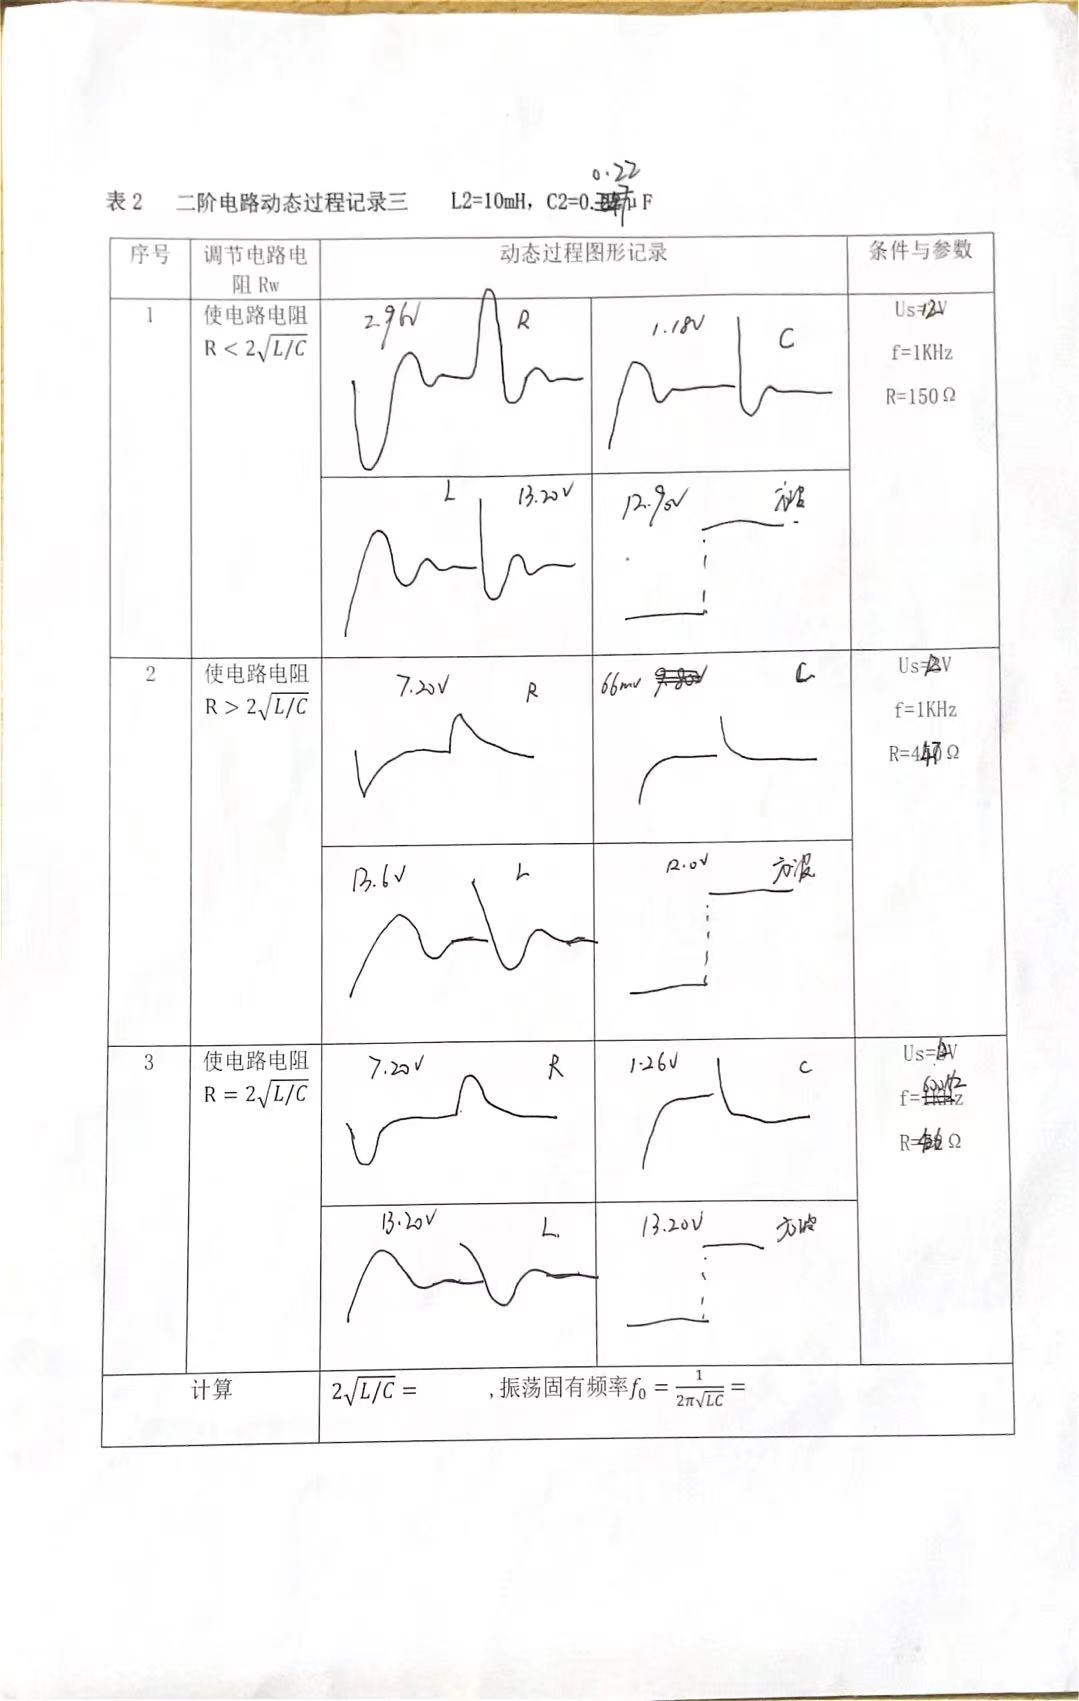 0.22
表2 二阶电路动态过程记录三 L2=10mH，C2=0. μF
序号 调节电路电阻 Rw 动态过程图形记录 条件与参数
1 使电路电阻
R < 2√L/C
2.96V R
1.18V C
Us=12V
f=1KHz
R=150Ω
L 13.20V
12.90V 方波
2 使电路电阻
R > 2√L/C
7.20V R
66mV
Us= V
f=1KHz
R=4 Ω
13.6V L
12.0V 方波
3 使电路电阻
R = 2√L/C
7.20V R
1.26V C
Us= V
f=
R= Ω
13.20V L
13.20V 方波
计算 2√L/C = ,振荡固有频率f₀ = 1/2π√LC =